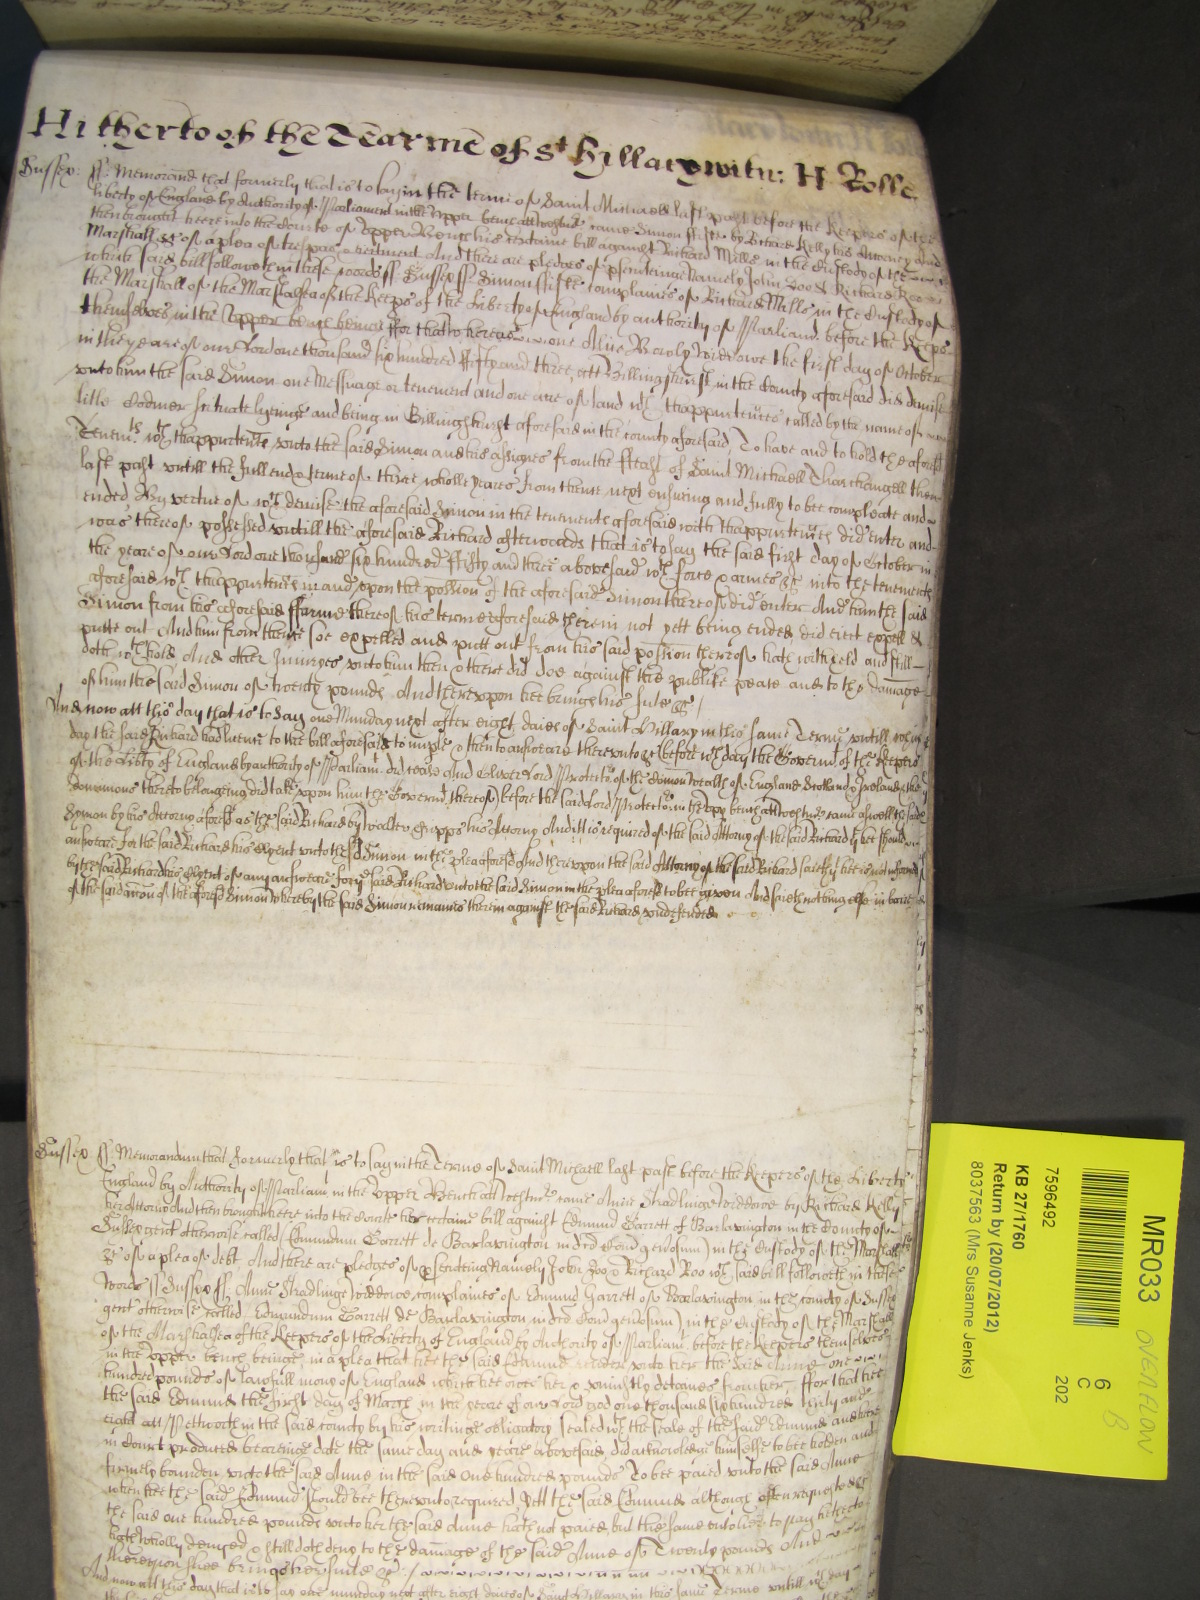 Hitherto of the Tearme of St Hillary with: H Rolle.
Sussex. ss. Memorand that formerly that is to say in the terme of Saint Michaell last past before the Keepers of the
liberty of England by authority of Parliament in the Upper bench att Westmr came Simon by Richard Kelly his Attorney And
then brought heere into the Courte of Upper Bench his certaine bill against Richard Mills in the Custody of the
Marshall &c of a plea of trespas & eiectment And there are pledges of psecuteinge Namely John Doo & Richard Roo
which said bill followeth in these words ss. Sussex ss. Simon complaines of Richard Mills in the Custody of
the Marshall of the Marshalsea of the Keeps of the liberty of England by authority of Parliamt before the Keeps
themselves in the Upper bench beinge ffor that whereas one Alice Widdowe the first day of October
in the yeare of our Lord one thousand six hundred ffifty and three att Billingshurst in the County aforesaid did demise
unto him the said Simon one Messuage or tenement and one acre of land wth thappurtences called by the name of
litle scituate lyeinge and being in Billinghurst aforesaid in the county aforesaid, To have and to hold the aforesd
Tenemts wth thappurtences unto the said Simon and his assignes from the ffeast of Saint Michaell Tharchangell then
last past untill the full end & terme of three wholle yeares from thence next ensuing and fully to bee compleate and
ended By vertue of wch demise the aforesaid Simon in the tenements aforesaid with thappurtences did enter and
was thereof possessed untill the aforesaid Richard afterwards that is to say the said first day of October in
the yeare of our Lord one thousand six hundred ffifty and three abovesaid wth force & armes &c into the tenements
aforesaid wth thappurtences in and upon the possion of the aforesaid Simon thereof did enter And him the said
Simon from his aforesaid ffarme thereof his terme aforesaid therein not yett being ended did eiect expell &
putt out And him from thence soe expelled and putt out from his said possion thereof hath withheld and still
doth wthhold And other Iniuryes unto him then & there did doe against the publike peace and to the damage
of him the said Simon of twenty pounds And thereuppon hee brings his suite &c
And now att this day that is to say one Munday next after eight daies of Saint Hillary in this same Terme untill which
day the said Richard had licence to the bill aforesaid to imple & then to answeare thereunto &c (before wch day the Governmt of the Keepers
of the Libty of England by authority of Parliamt did cease And Oliver Lord Protector of the Comonwealth of England Scotland & Ireland & the
dominions thereto belonging did take upon him the Governmt thereof) before the said Lord Protector in the Upp bench att Westmr came aswell the said
Symon by his Attorny aforesd as the said Richard by Walter his Attorny And itt is required of the said Attorny of the said Richard if hee should
answeare for the said Richard his clyent unto the sd Simon in the plea aforesd And thereuppon the said Attorny of the said Richard saieth yt hee is not informed
by the said Richard his clyent of any answeare for ye said Richard unto the said Simon in the plea aforesd to bee given And saieth nothing else in barre
of the said accon of the aforesd Simon whereby the said Simon remaines therein against the said Richard undefended
Sussex ss. Memorandum that formerly that is to say in the Terme of Saint Michaell last past before the Keepers of the Liberty
England by Authority of Parliamt in the Upper Bench att Westmr came Anne Stradlinge Widdowe by Richard Kelly
her Attorny And then brought heere into the Courte her certaine bill against Edmund Garrett of Barlavington in the County of
Sussex gent otherwise called (Edmundum Garrett de Barlavington in dco Com generosum) in the Custody of the Marshall
&c of a plea of debt And there are pledges of psecuteing Namely John Doo & Richard Roo wch said bill followeth in these
words ss. Sussex ss. Anne Stradlinge widdowe complaines of Edmund Garrett of Barlavington in the county of Sussex
gent otherwise called Edmundum Garrett de Barlavington in dco Com generosum) in the Custody of the Marshall
of the Marshalsea of the Keepers of the Liberty of England by Authority of Parliamt before the Keepers themselves
in the Upper bench beinge in a plea that hee the said Edmund render unto her the said Anne one
hundred pounds of lawfull mony of England which hee owes her & uniustly detaines from her, ffor that hee
the said Edmund the first day of March in the yeare of our Lord God one thousand six hundred forty and
eight att Petworth in the said county by his writinge obligatory sealed wth the seale of the said Edmund and here
in Court produced beareinge date the same day and yeare abovesaid did acknowledge himselfe to bee holden and
firmely bounden unto the said Anne in the said one hundred pounds To bee paied unto the said Anne
when hee the said Edmund should bee thereunto required Yett the said Edmund although often requested
the said one hundred pounds unto her the said Anne hath not paied but the same unto her to pay hitherto
hath wholly denyed & still doth deny to the damage of the said Anne of Twenty pounds And
thereuppon shee brings her suite &c
And now att this day that is to say one munday next after eight daies of Saint Hillary in this same Terme untill wch day
MR033
OVERFLOW
B
6
C
202
7596492
KB 27/1760
Return by (20/07/2012)
8037563 (Mrs Susanne Jenks)